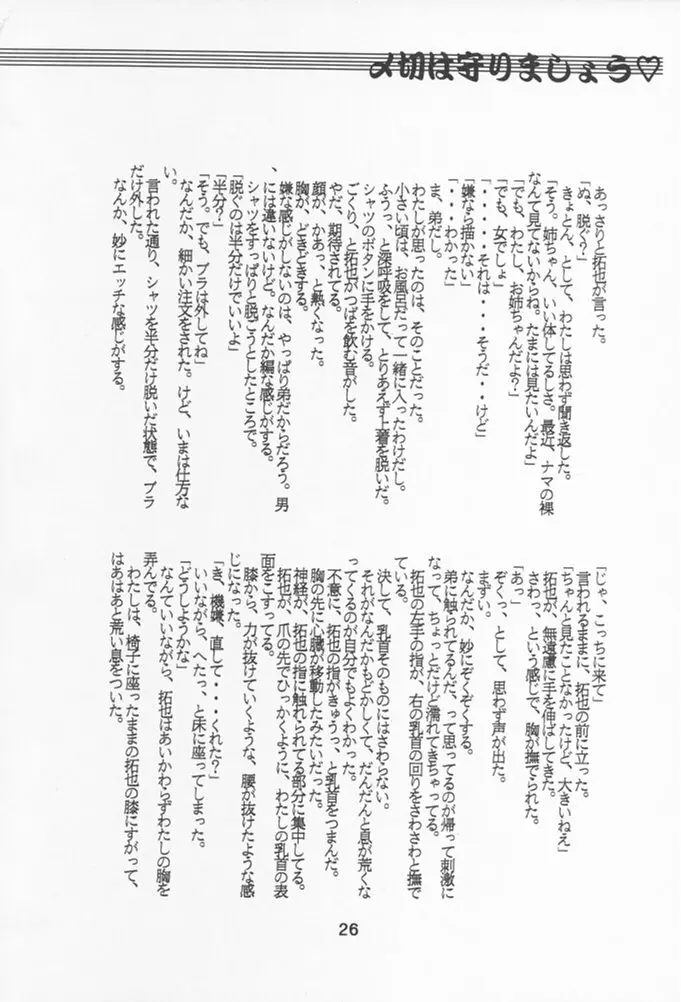 〆切は守りましょう♡
あっさりと拓也が言った。
「ぬ、脱ぐ?」
きょとん、として、わたしは思わず聞き返した。
「そう。姉ちゃん、いい体してるしさ。最近、ナマの裸
なんて見てないからね。たまには見たいんだよ」
「でも、わたし、お姉ちゃんだよ?」
「でも、女でしょ」
「・・・・・それは・・・そうだ・・けど」
「嫌なら描かない」
「・・・わかった」
ま、弟だし。
わたしが思ったのは、そのことだった。
小さい頃は、お風呂だって一緒に入ったわけだし。
ふうっ、と深呼吸をして、とりあえず上着を脱いだ。
シャツのボタンに手をかける。
ごくり、と拓也がつばを飲む音がした。
やだ、期待されてる。
顔が、かあっ、と熱くなった。
胸が、どきどきする。
嫌な感じがしないのは、やっぱり弟だからだろう。男
、には違いないけど。なんだか編な感じがする。
シャツをすっぱりと脱ごうとしたところで。
「脱ぐのは半分だけでいいよ」
「半分?」
「そう。でも、ブラは外してね」
なんだか、細かい注文をされた。けど、いまは仕方な
い。
言われた通り、シャツを半分だけ脱いだ状態で、ブラ
だけ外した。
なんか、妙にエッチな感じがする。
「じゃ、こっちに来て」
言われるままに、拓也の前に立った。
「ちゃんと見たことなかったけど、大きいねえ」
拓也が、無遠慮に手を伸ばしてきた。
さわっ、という感じで、胸が撫でられた。
「あっ」
ぞくっ、として、思わず声が出た。
まずい。
なんだか、妙にぞくぞくする。
弟に触られてるんだ、って思ってるのが帰って刺激に
なって、ちょっとだけ濡れてきちゃってる。
拓也の左手の指が、右の乳首の回りをさわさわと撫で
ている。
決して、乳首そのものにはさわらない。
それがなんだかもどかしくて、だんだんと息が荒くな
ってくるのが自分でもよくわかった。
不意に、拓也の指がきゅうっ、と乳首をつまんだ。
胸の先に心臓が移動したみたいだった。
神経が、拓也の指に触れられてる部分に集中してる。
拓也が、爪の先でひっかくように、わたしの乳首の表
面をこすってる。
膝から、力が抜けていくような、腰が抜けたような感
じになった。
「き、機嫌、直して・・・くれた?」
いいながら、へたっ、と床に座ってしまった。
「どうしようかな」
なんていいながら、拓也はあいかわらずわたしの胸を
弄んでる。
わたしは、椅子に座ったままの拓也の膝にすがって、
はあはあと荒い息をついた。
26